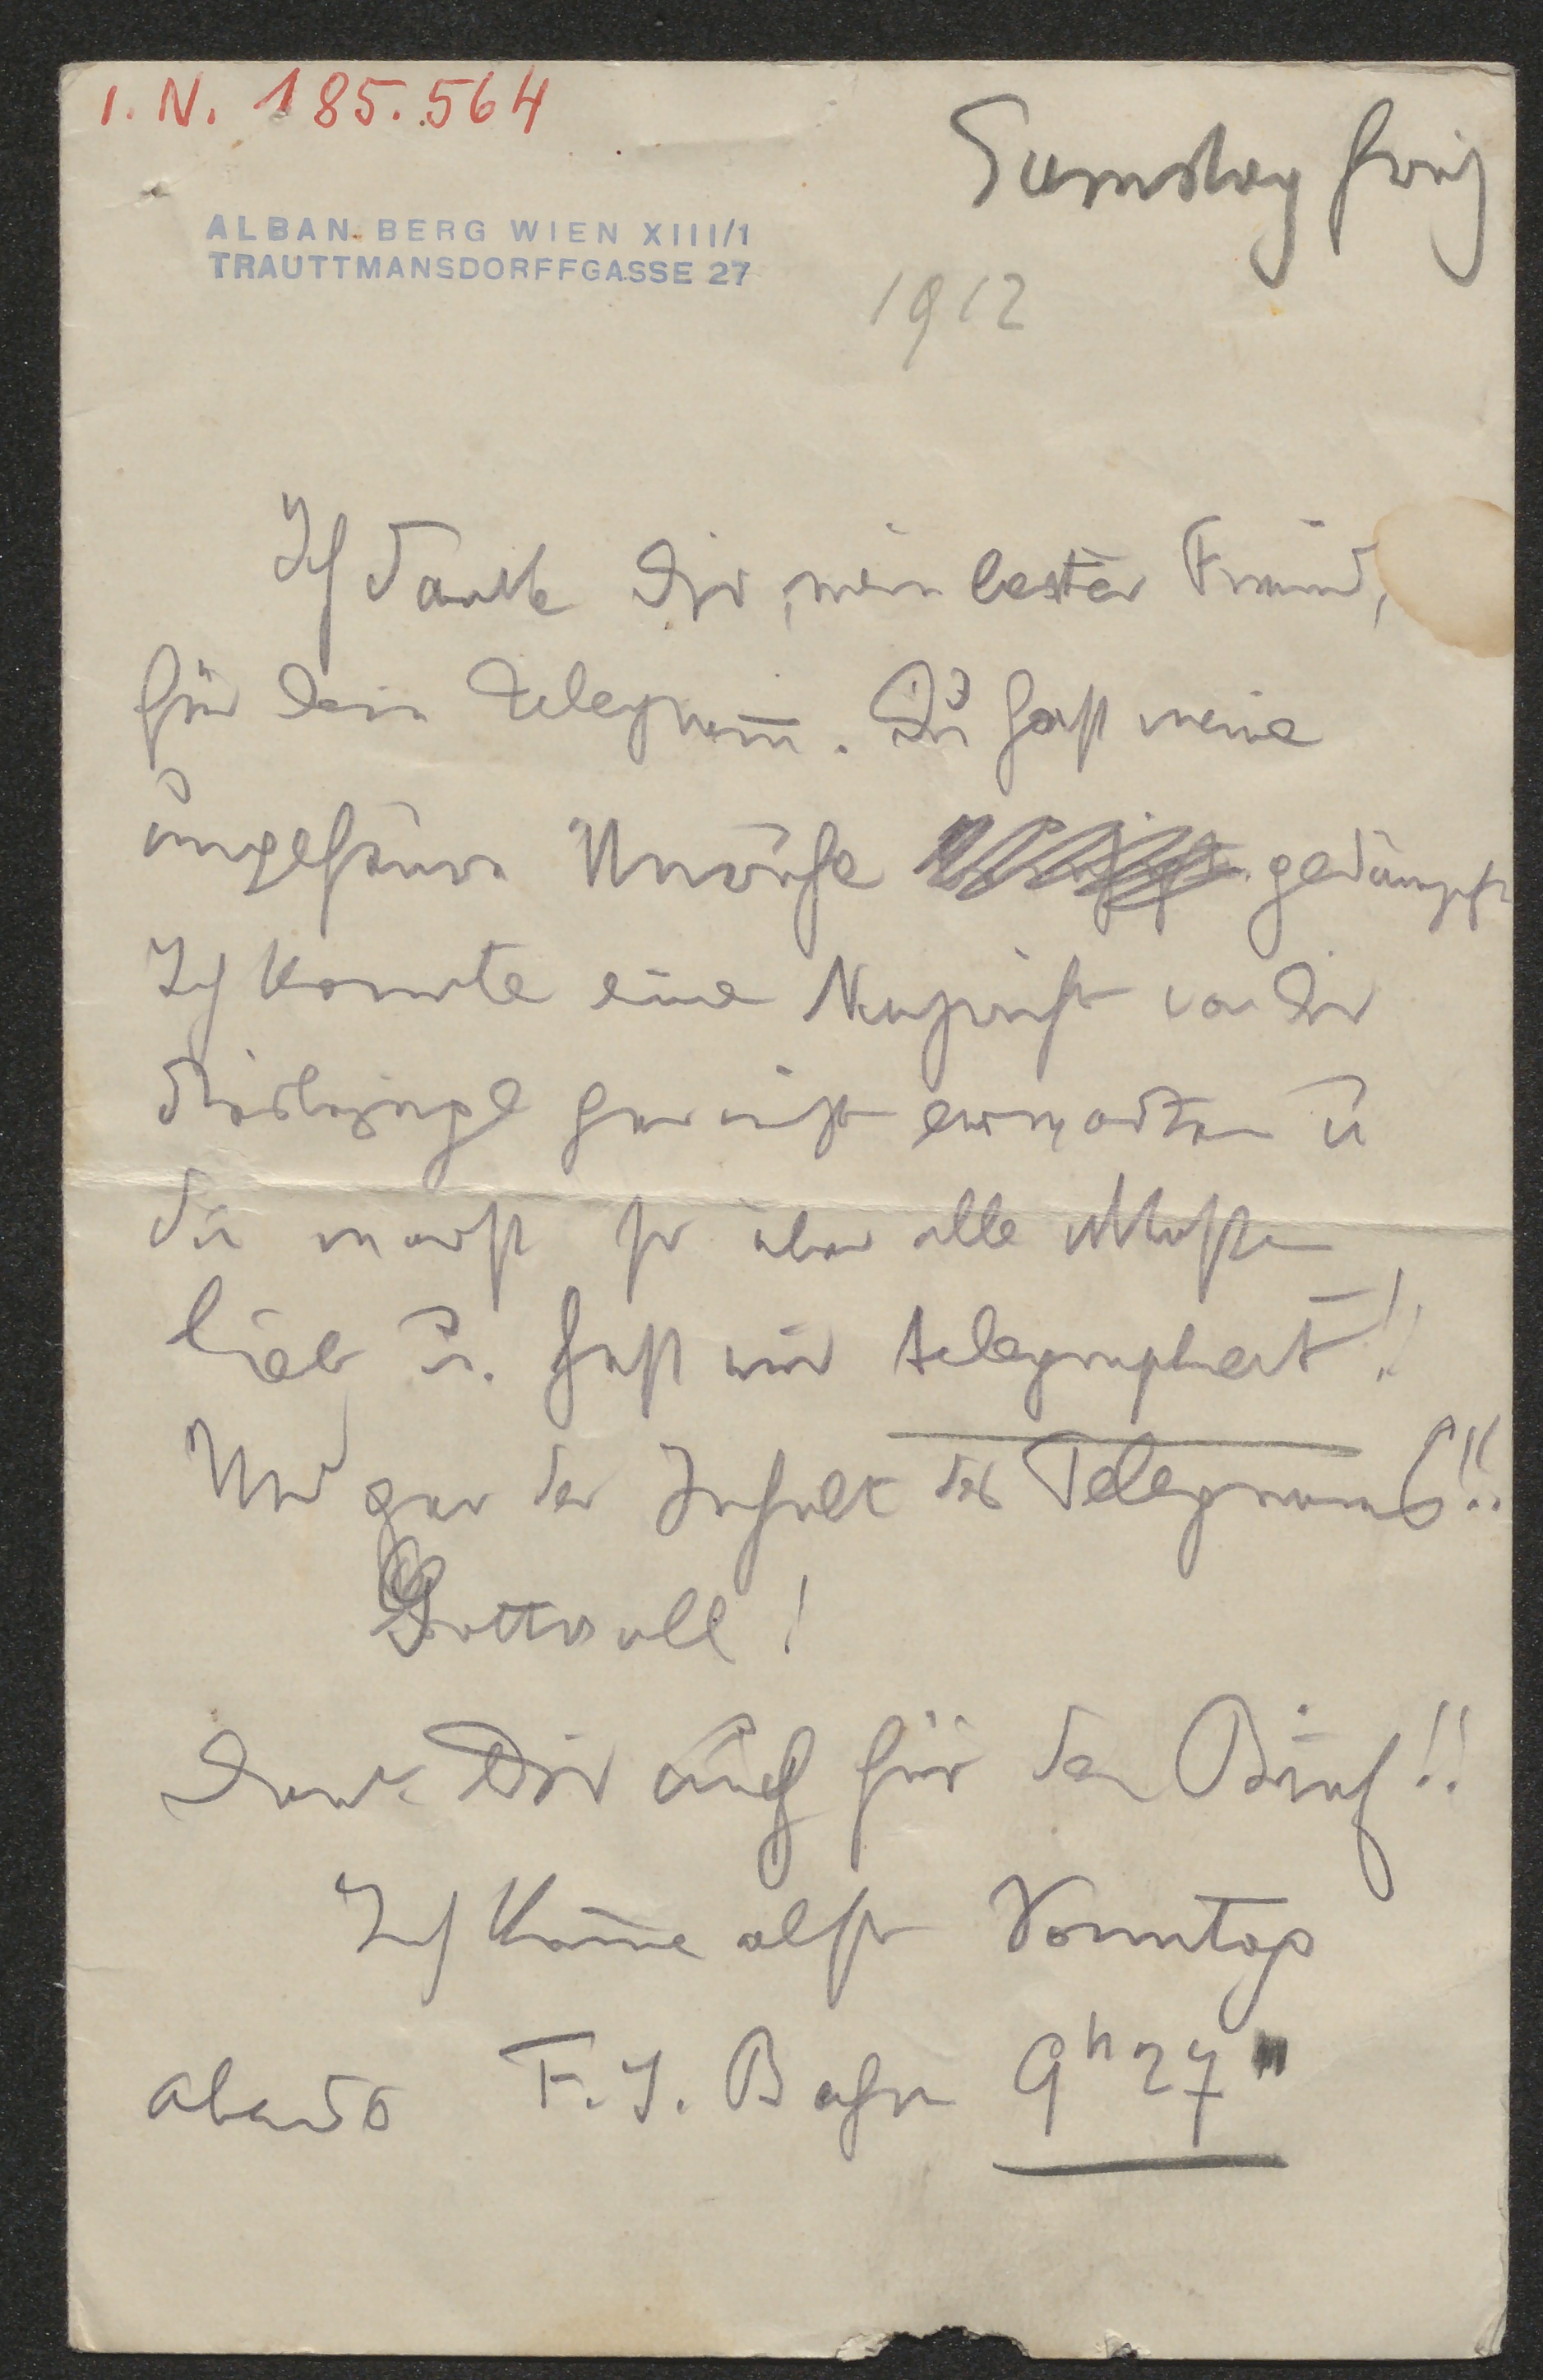 I. N. 185.564
Samstag früh
ALBAN BERG WIEN XIII/1
TRAUTTMANSDORFFGASSE 27
1912
Ich danke Dir, mein bester Freund,
für Dein Telegram̄. Du hast meine
ungeheure Unruhe gedämpft
Ich konnte eine Nachricht von Dir
diesbezügl gar nicht erwarten u
du warst so über alle Maßen
lieb u. hast mir telegraphiert!!
Und gar der Inhalt des Telegramms!!
Gottvoll!
Dank Dir auch für den Brief!!
Ich kom̄e also Sonntag
abends F. J. Bahn 9h 27